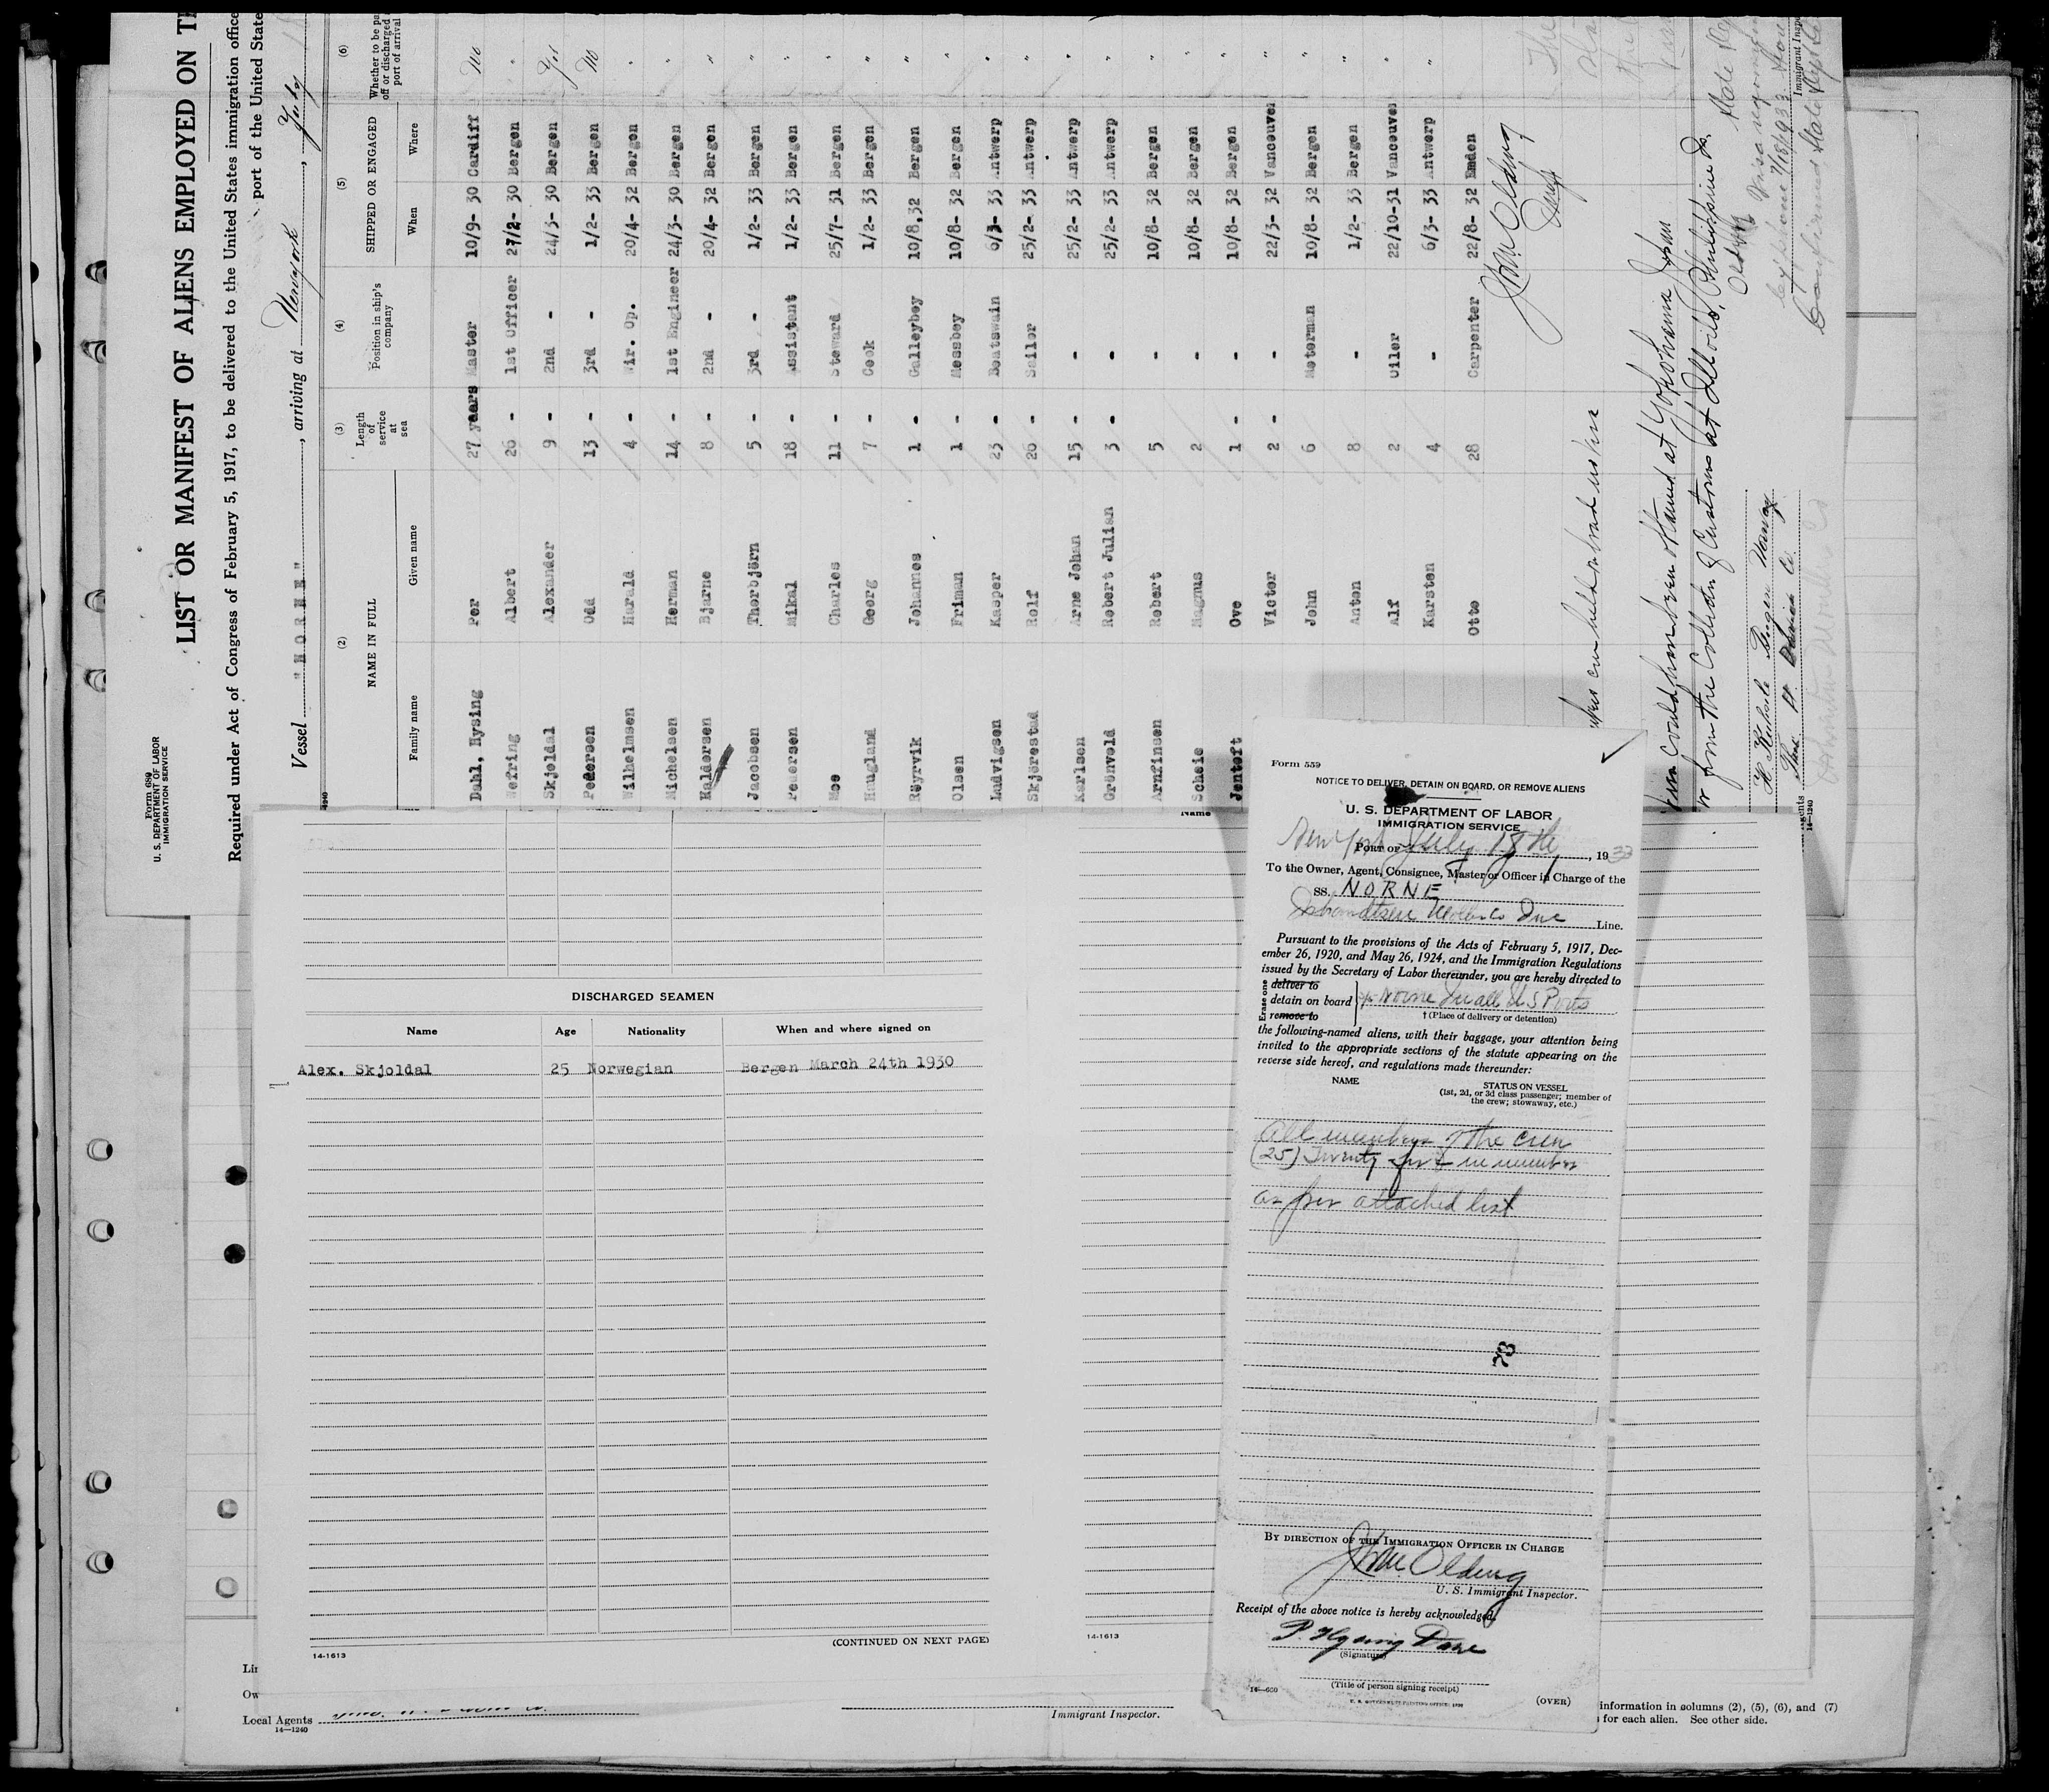 Form 689
U. S. DEPARTMENT OF LABOR
IMMIGRATION SERVICE
LIST OR MANIFEST OF ALIENS EMPLOYED ON
Required under Act of Congress of February 5, 1917, to be delivered to the United States immigration
port of the United
Vessel "NORNE", arriving at Newyork, July
(2) (3) (4) (5) (6)
NAME IN FULL Length of service at sea Position in ship's company SHIPPED OR ENGAGED Whether to be
off or discharged
port of arrival
Family name Given name When Where
Dahl, Hysing Per 27 years Master 10/9- 30 Cardiff No
Wefring Albert 26 - 1st Officer 27/2- 30 Bergen "
Skjoldal Alexander 9 - 2nd - 24/3- 30 Bergen Yes
Pedersen Odd 13 - 3rd - 1/2- 33 Bergen No
Wilhelmsen Harald 4 - Wir. Op. 20/4- 32 Bergen "
Michelsen Herman 14 - 1st Engineer 24/3- 30 Bergen "
Haldorsen Bjarne 8 - 2nd - 20/4- 32 Bergen "
Jacobsen Thorbjörn 5 - 3rd - 1/2- 33 Bergen "
Pedersen Mikal 18 - Assistant 1/2- 33 Bergen "
Moe Charles 11 - Steward 25/7- 31 Bergen "
Haugland Georg 7 - Cook 1/2- 33 Bergen "
Röyrvik Johannes 1 - Galleyboy 10/8,32 Bergen "
Olsen Friman 1 - Messboy 10/8- 32 Bergen "
Ludvigsen Kasper 23 - Boatswain 6/3- 33 Antwerp "
Skjörestad Rolf 26 - Sailor 25/2- 33 Antwerp "
Karlsen Arne Johan 15 - - 25/2- 33 Antwerp "
Grönvold Robert Julian 3 - - 25/2- 33 Antwerp "
Arnfinsen Robert 5 - 10/8- 32 Bergen "
Scheie Magnus 2 - 10/8- 32 Bergen "
Jentoft Ove 1 - - 10/8- 32 Bergen "
Victor 2 - - 22/3- 32 Vancouver "
John 6 Motorman 10/8- 32 Bergen "
Anton 8 - 1/2- 33 Bergen "
Alf 2 Oiler 22/10-31 Vancouver "
Karsten 4 - 6/3- 33 Antwerp "
Otto 28 Carpenter 22/8- 32 Emden
could have been obtained at Yokohama Japan
from the Collector of Customs at Iloilo, Philippine Is.
Bergen Norway
14-1240
DISCHARGED SEAMEN
Name Age Nationality When and where signed on
Alex. Skjoldal 25 Norwegian Bergen March 24th 1930
(CONTINUED ON NEXT PAGE)
14-1613
14-1613
Name
Local Agents
14—1240
Immigrant Inspector.
information in columns (2), (5), (6), and (7)
for each alien. See other side.
Form 559
NOTICE TO DELIVER, DETAIN ON BOARD, OR REMOVE ALIENS
U. S. DEPARTMENT OF LABOR
IMMIGRATION SERVICE
New York
PORT OF July 18th, 1933
To the Owner, Agent, Consignee, Master or Officer in Charge of the
SS. NORNE
Isbrandtsen Moller Co Inc Line.
Pursuant to the provisions of the Acts of February 5, 1917, Dec-
ember 26, 1920, and May 26, 1924, and the Immigration Regulations
issued by the Secretary of Labor thereunder, you are hereby directed to
Erase one
deliver to
detain on board
remove to
Norne In all U S Ports
† (Place of delivery or detention)
the following-named aliens, with their baggage, your attention being
invited to the appropriate sections of the statute appearing on the
reverse side hereof, and regulations made thereunder:
NAME STATUS ON VESSEL
(1st, 2d, or 3d class passenger; member of
the crew; stowaway, etc.)
All members of the crew
(25) Twenty five in number
as per attached list
78
BY DIRECTION OF THE IMMIGRATION OFFICER IN CHARGE
U. S. Immigrant Inspector.
Receipt of the above notice is hereby acknowledged,
(Signature)
(Title of person signing receipt)
(OVER)